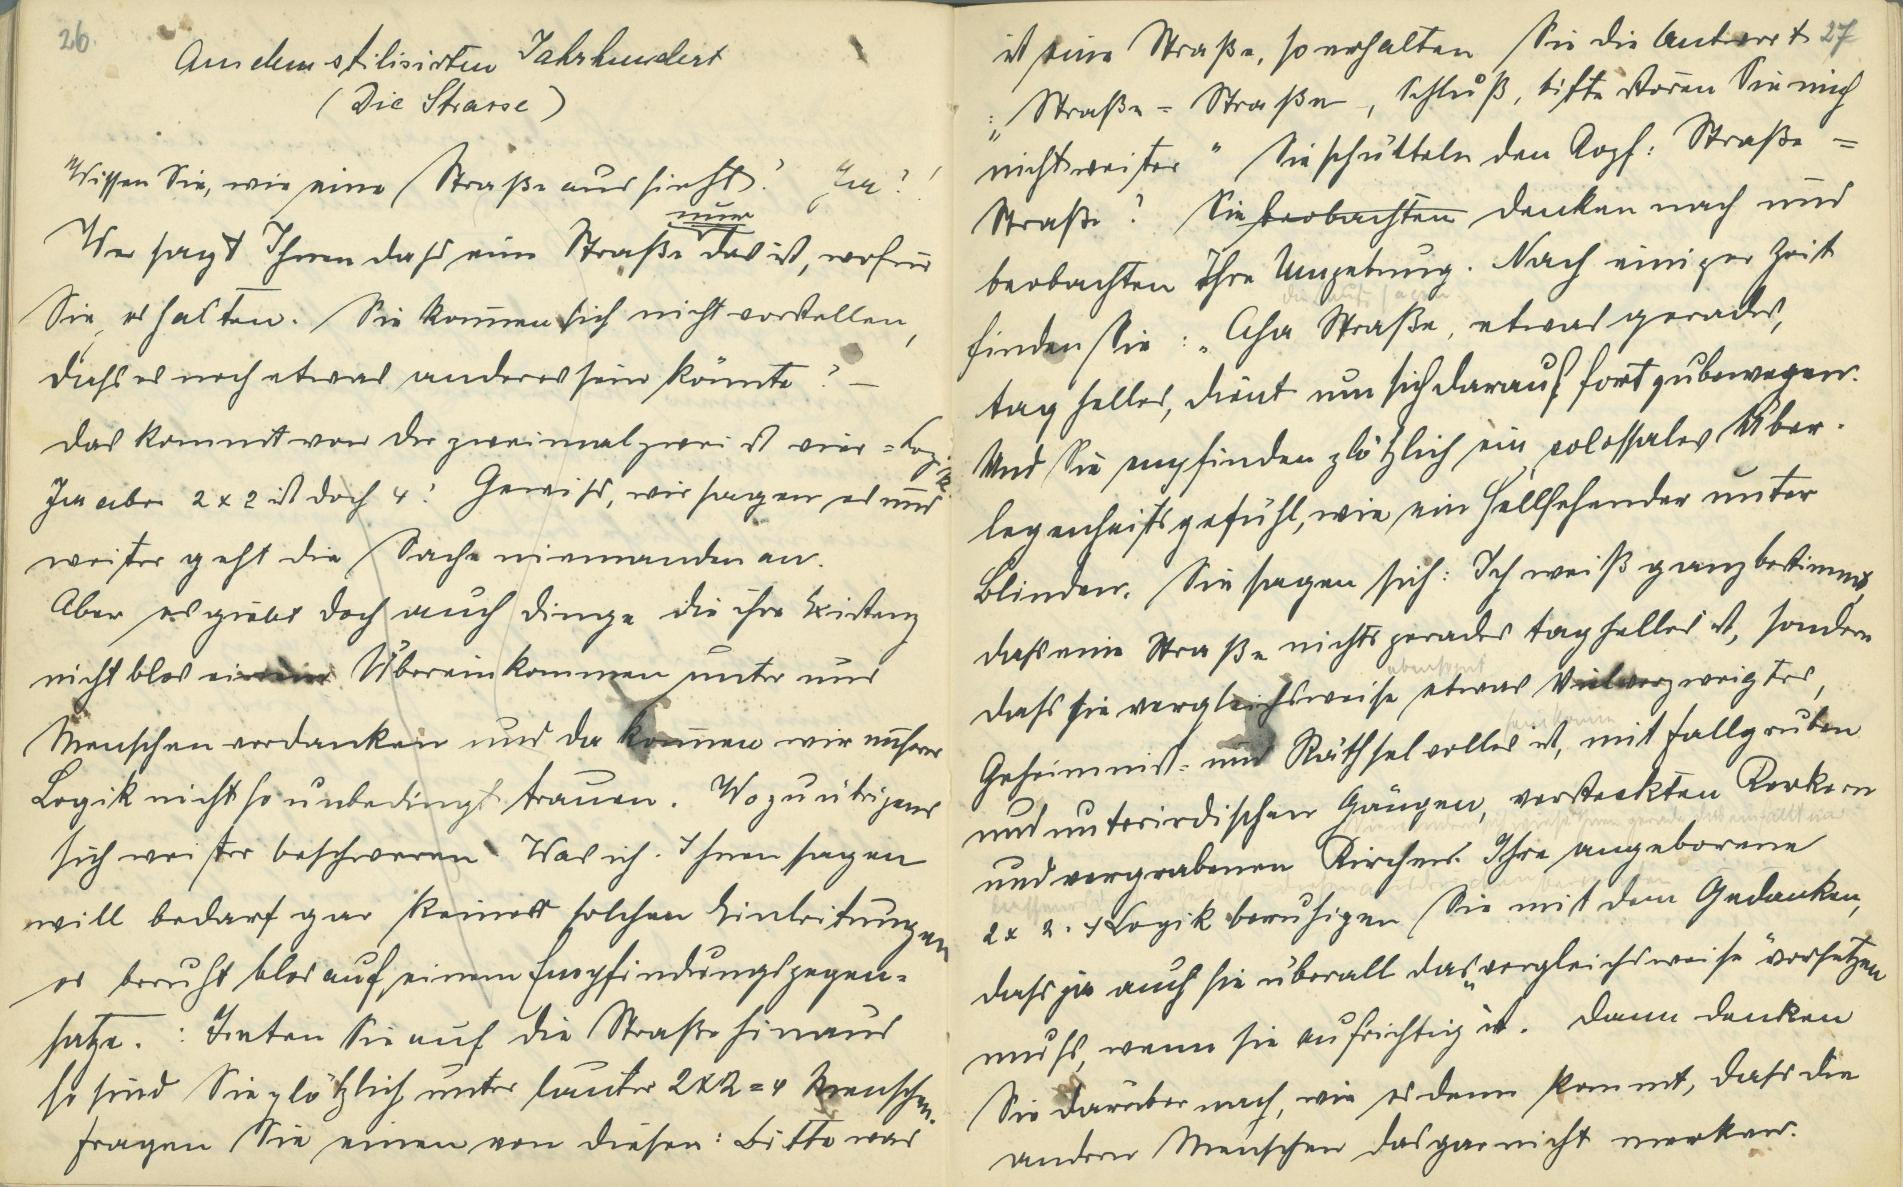 26
Aus dem stilisirten Jahrhundert
(Die Strasse)
Wissen Sie, wie eine Straße aussieht? Ja?!
Wer sagt Ihnen dass eine Straße nur das ist, wofür
Sie es halten. Sie können sich nicht vorstellen,
dass es noch etwas anderes sein könnte? –
Das kommt von der zweimalzwei ist vier = Logik
Ja aber 2 x 2 ist doch 4! Gewiss, wir sagen es und
weiter geht die Sache niemanden an.
Aber es giebt doch auch Dinge die ihre Existenz
nicht blos einem Übereinkommen unter uns
Menschen verdanken und da können wir unserer
Logik nicht so unbedingt trauen. Wozu übrigens
sich weiter beschweren Was ich Ihnen sagen
will bedarf gar keiner solchen Einleitungen
es beruht blos auf einem Empfindungsgegen-
satze. : Treten Sie auf die Straße hinaus
so sind Sie plötzlich unter lauter 2x2=4 Menschen.
Fragen Sie einen von diesen: Bitte was
27
ist eine Straße, so erhalten Sie die Antwort
: „Straße = Straße, Schluß, bitte stören Sie mich
nicht weiter" Sie schütteln den Kopf: Straße =
Straße? Sie beobachten denken nach und
beobachten Ihre Umgebung. Nach einiger Zeit
finden Sie: „Aha Straße, etwas gerades,
taghelles, dient um sich darauf fortzubewegen.
Und Sie empfinden plötzlich ein colossales Über-
legenheitsgefühl, wie ein Hellsehender unter
Blinden. Sie sagen sich: Ich weiß ganz bestimmt,
dass eine Straße nichts gerades taghelles ist, sondern
dass sie vergleichsweise etwas Vielverzweigtes,
Geheimniss- und Räthselvolles ist, mit Fallgruben
und unterirdischen Gängen, versteckten Kerkern
und vergrabenen Kirchen. Ihre angeborene
2 x 2 = 4 Logik beruhigen Sie mit dem Gedanken,
dass ja auch sie überall das „vergleichsweise" vorsetzen
muss, wenn sie aufrichtig ist. Dann denken
Sie darüber nach, wie es denn kommt, dass die
andern Menschen das gar nicht merken.